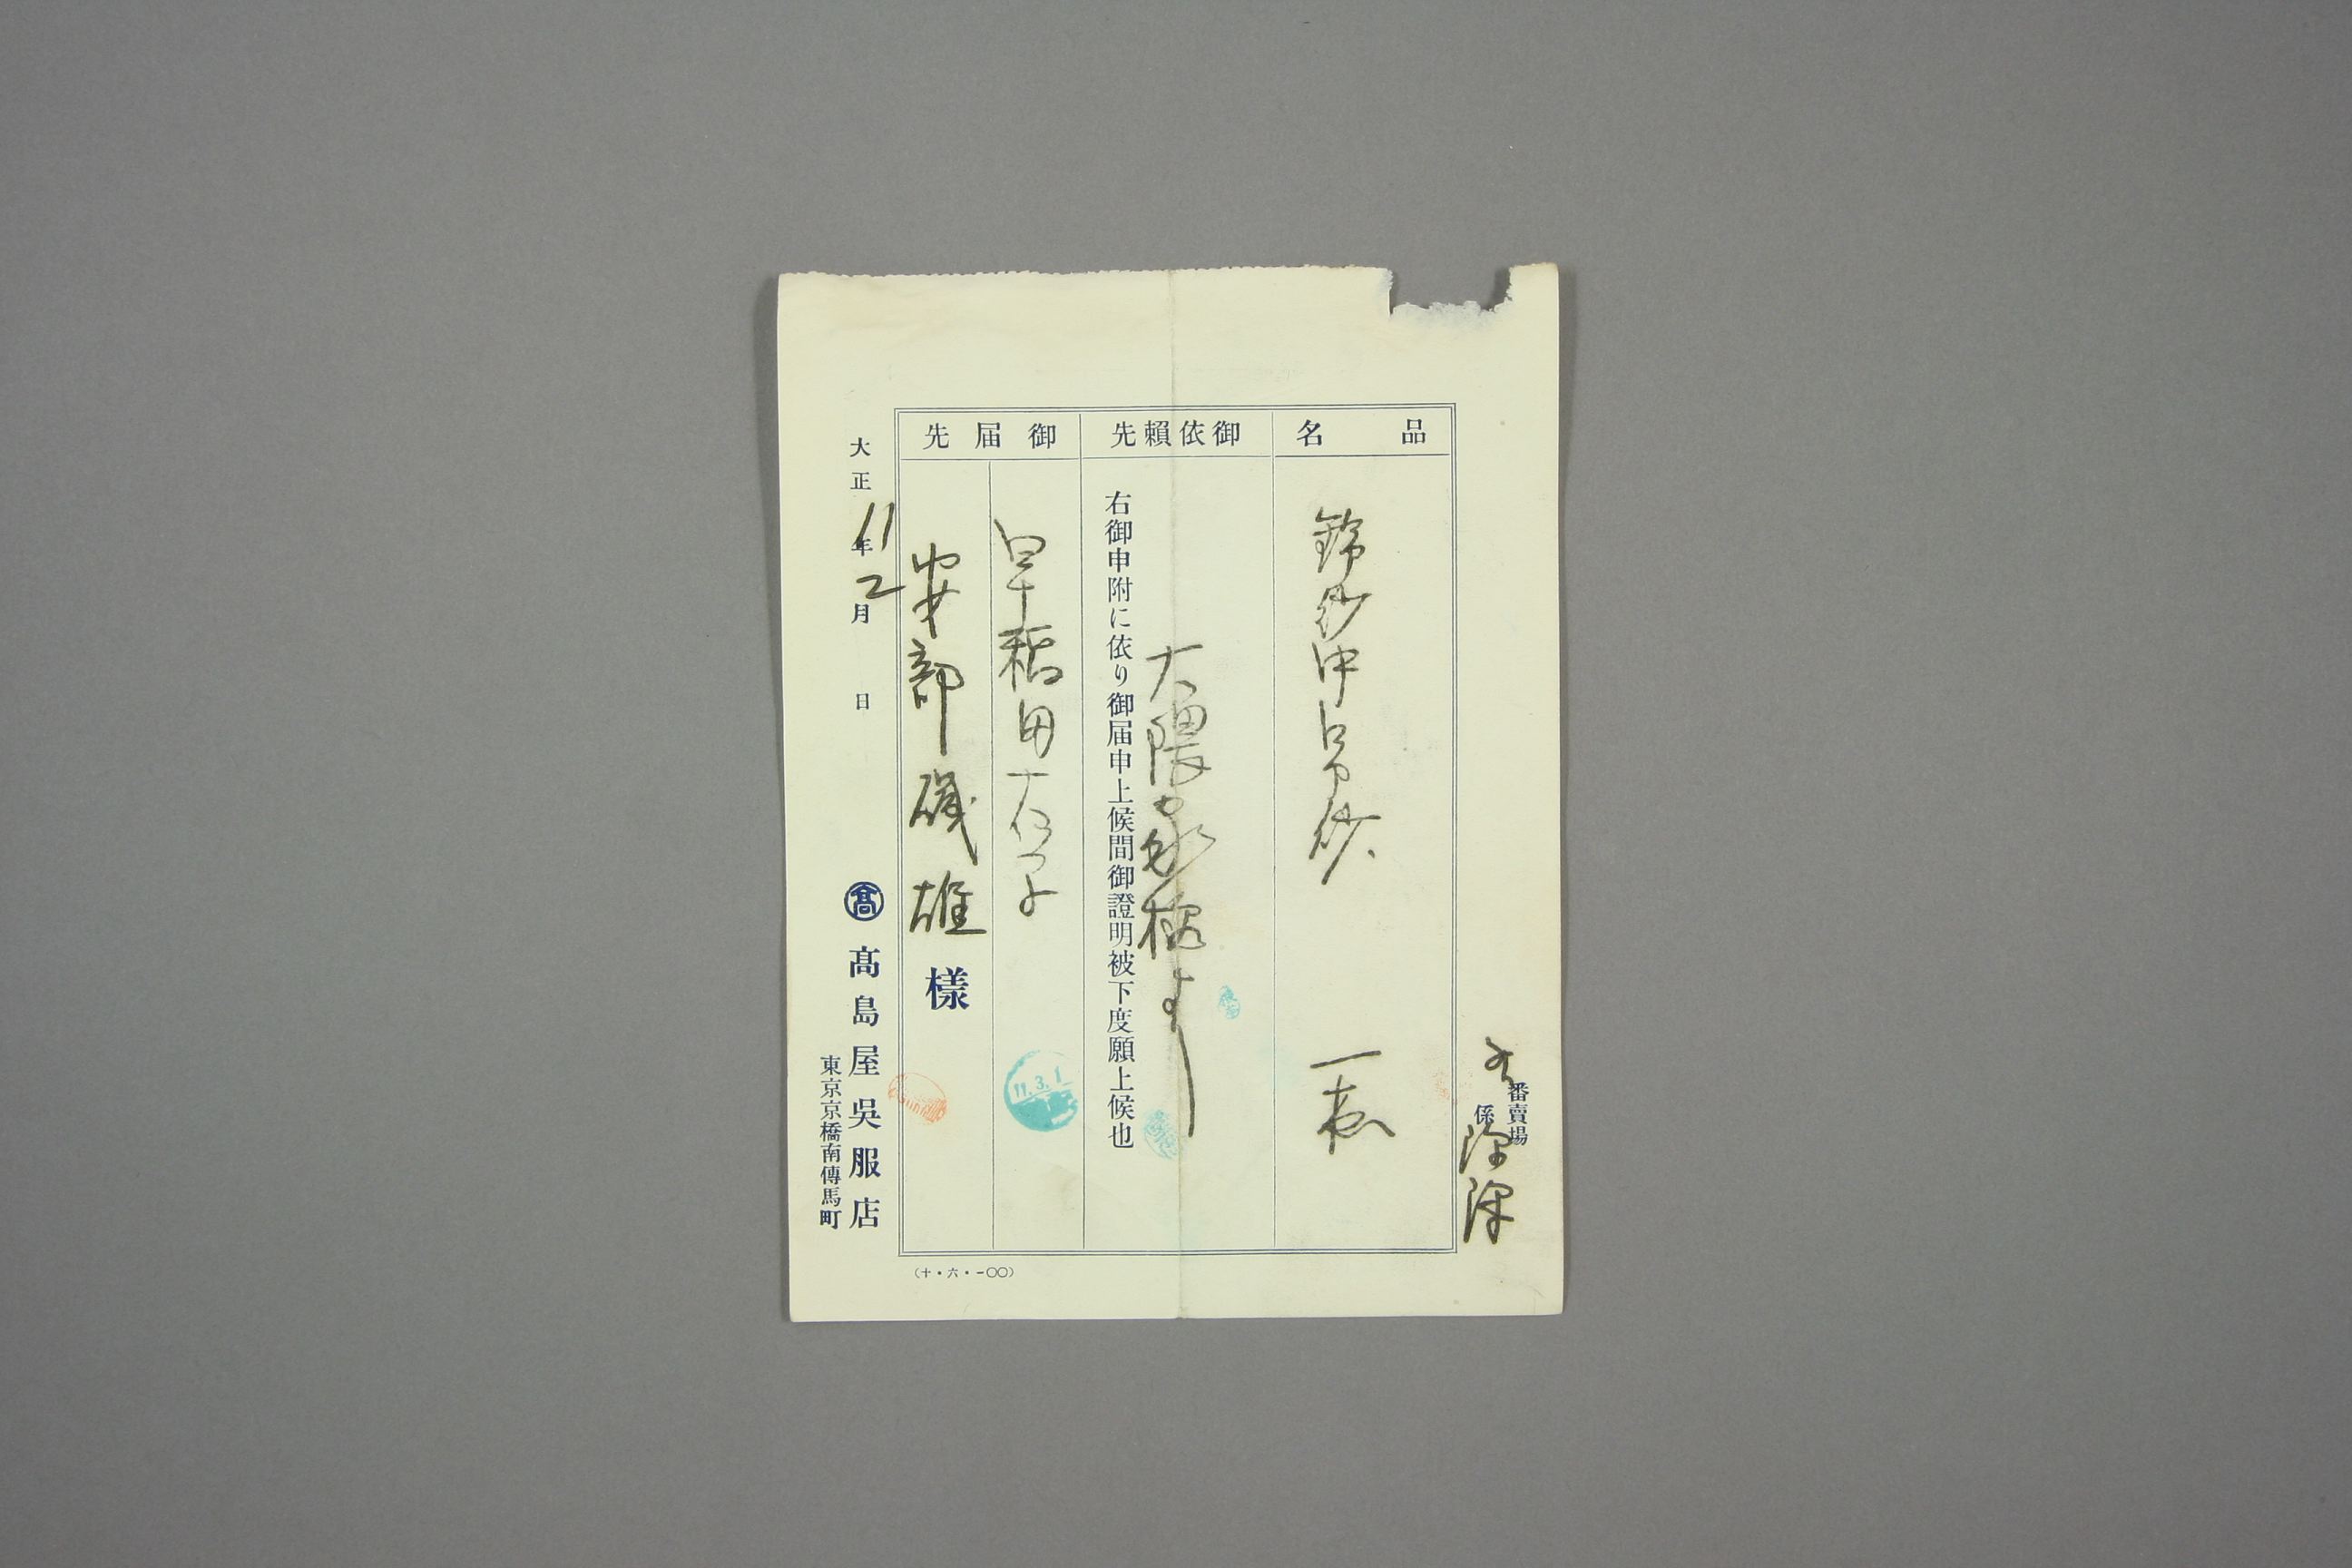 番賣場
係
品名
錦紗中巾紗
一表
御依賴先
大隈家様より
右御申附に依り御届申上候間御證明被下度願上候也
御届先
早稲田大学
安部磯雄 様
大正11年2月 日
髙
髙島屋吳服店
東京京橋南傳馬町
(十・六・一〇〇)
11.3.1